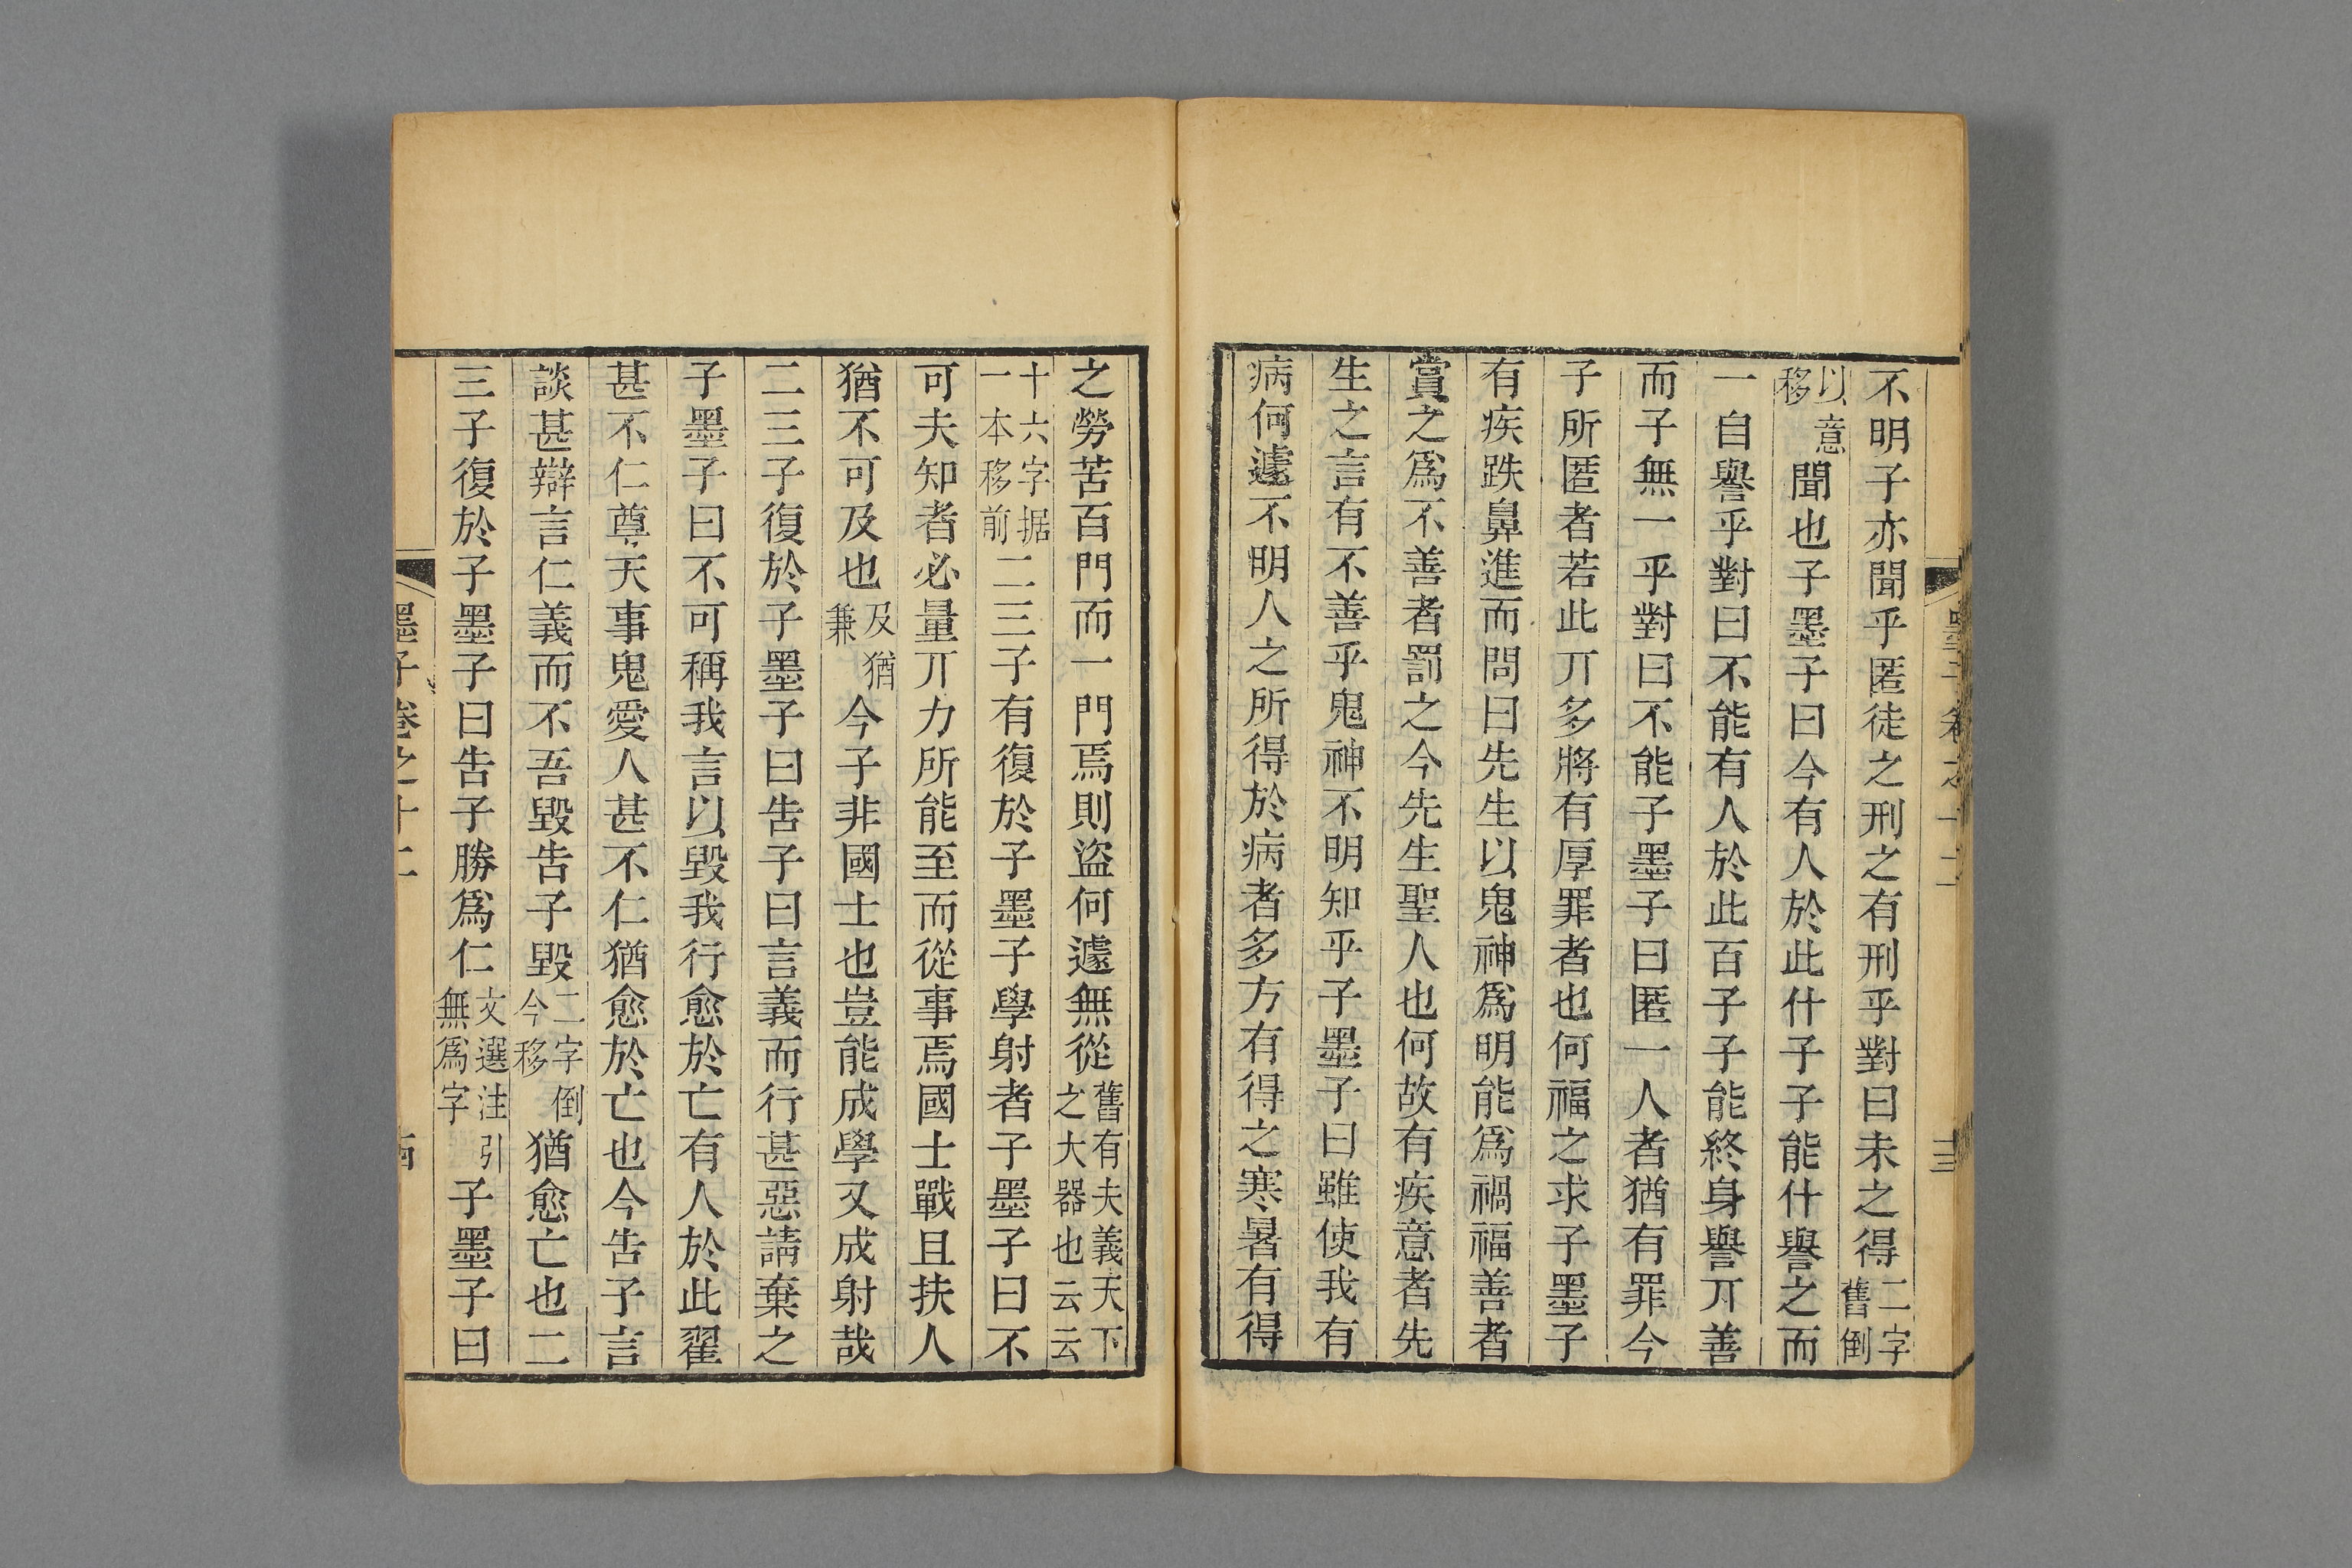 不明子亦聞乎匿徒之刑之有刑乎對曰未之得二字舊倒
以意移聞也子墨子曰今有人於此什子子能什譽之而
一自譽乎對曰不能有人於此百子子能終身譽丌善
而子無一乎對曰不能子墨子曰匿一人者猶有罪今
子所匿者若此丌多將有厚罪者也何福之求子墨子
有疾跌鼻進而問曰先生以鬼神爲明能爲禍福善者
賞之爲不善者罰之今先生聖人也何故有疾意者先
生之言有不善乎鬼神不明知乎子墨子曰雖使我有
病何遽不明人之所得於病者多方有得之寒暑有得
之勞苦百門而一門焉則盜何遽無從舊有夫義天下之大器也云云
十六字据一本移前二三子有復於子墨子學射者子墨子曰不
可夫知者必量丌力所能至而從事焉國士戰且扶人
猶不可及也及猶兼今子非國士也豈能成學又成射哉
二三子復於子墨子曰告子曰言義而行甚惡請棄之
子墨子曰不可稱我言以毀我行愈於亡有人於此翟
甚不仁尊天事鬼愛人甚不仁猶愈於亡也今告子言
談甚辯言仁義而不吾毀告子毀二字倒今移猶愈亡也二
三子復於子墨子曰告子勝爲仁文選注引無爲字子墨子曰
墨子卷之十二